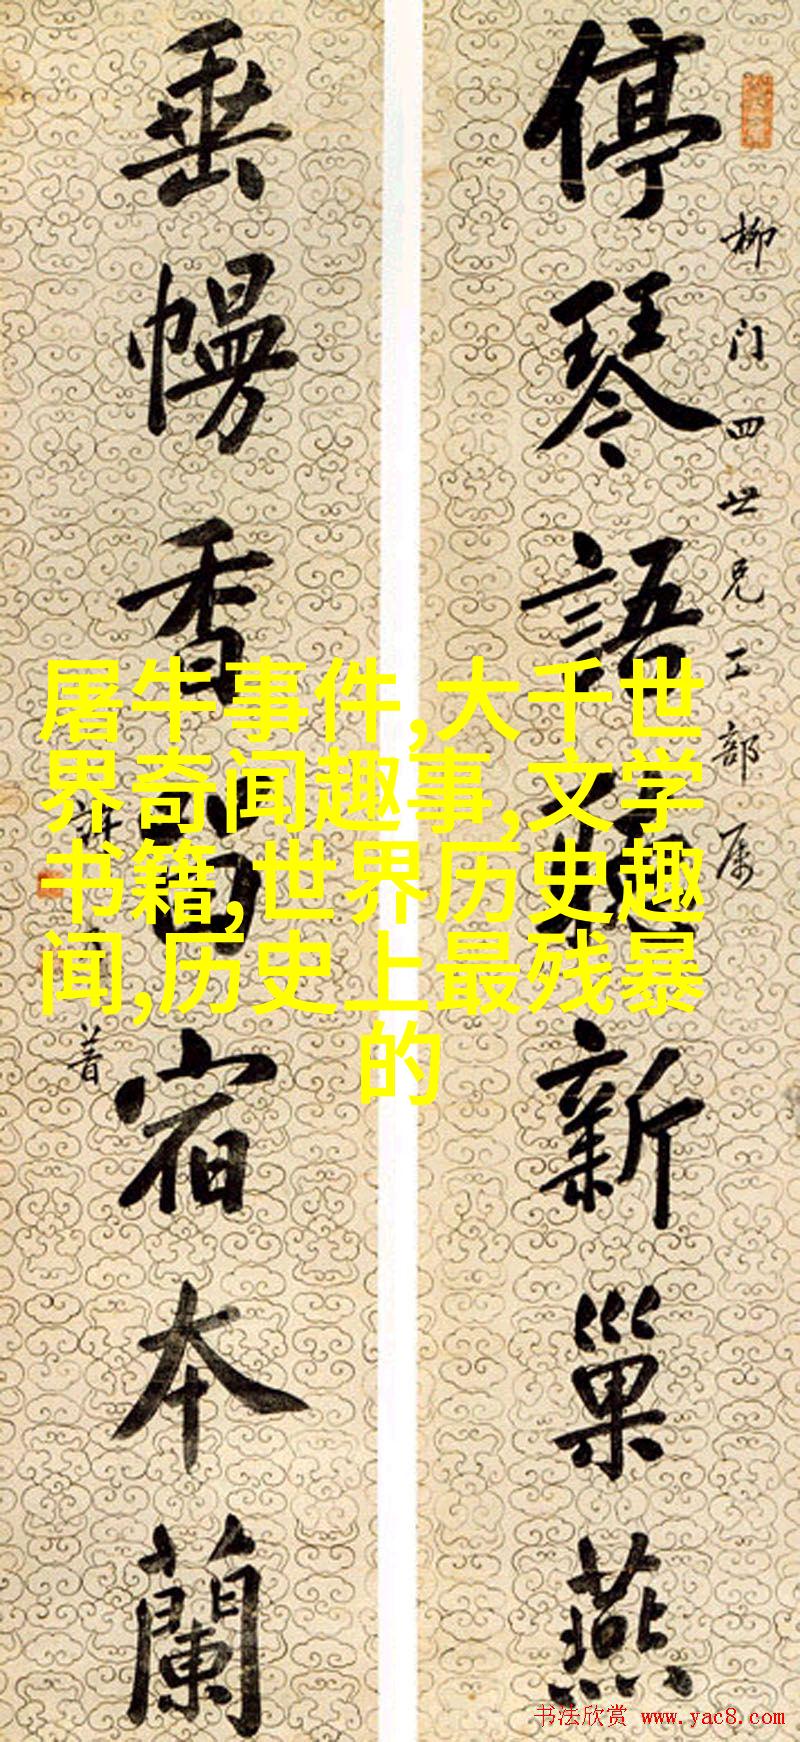 柳门四世兄工部属
停琴語新巢燕
垂幔香留宿本蘭
屠牛事件,大千世
界奇闻趣事,文学
书籍,世界历史趣
闻,历史上最残暴
的
书法欣赏 www.yac8.com